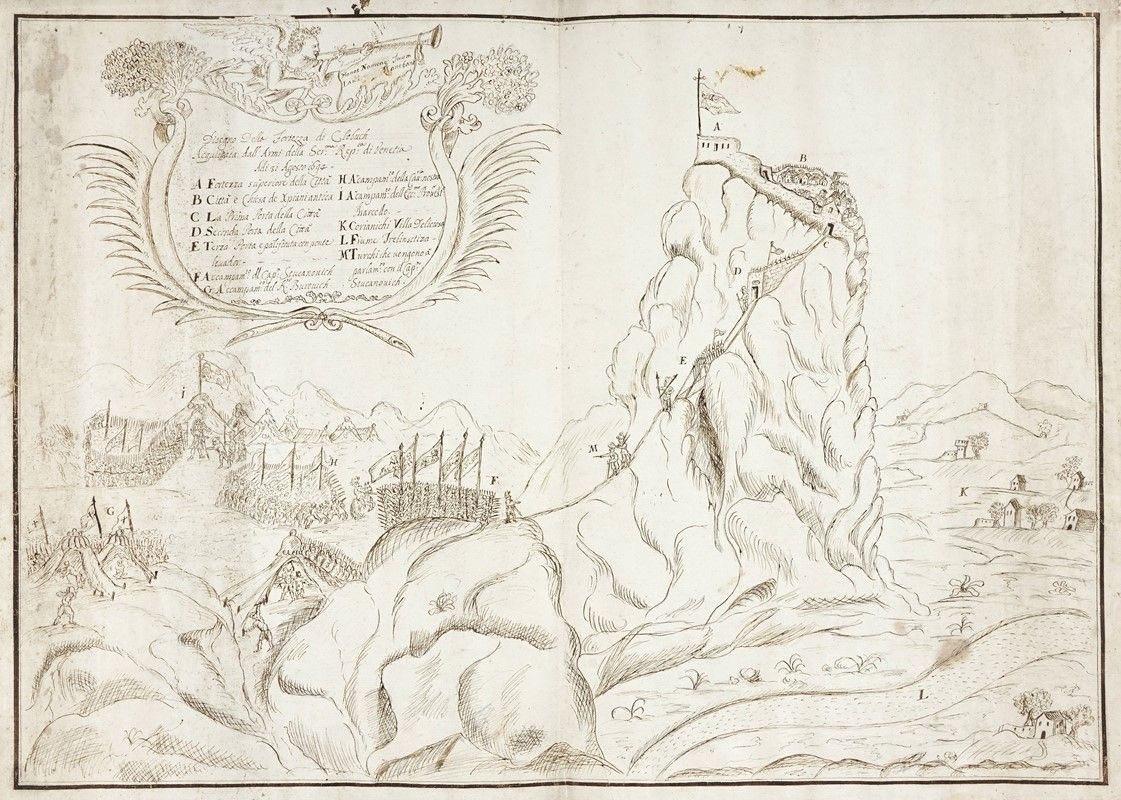 Disegno Della Fortezza di Clobuch
Acquistata dall' Armi della Ser.ma Rep.ca di Venetia
Adi 21 Agosto 1694
A Fortezza superiore della Città
B Città e Chiesa de Xpiani antica
C La Prima Porta della Città
D Seconda Porta della Città
E Terza Porta e palificata con ponte
leuador
F Accampam.to del Cap.o Stucanouich
G Accampam.to del K.r Burouich
H Acampam.to della
I Acampam.to dell'
Marcello
K Corianichi Villa
L Fiume Trebinstiza
M Turchi che uengono a
parlam.to con il Cap.o
Stucanouich
A
B
C
D
E
M
I
H
F
G
K
L